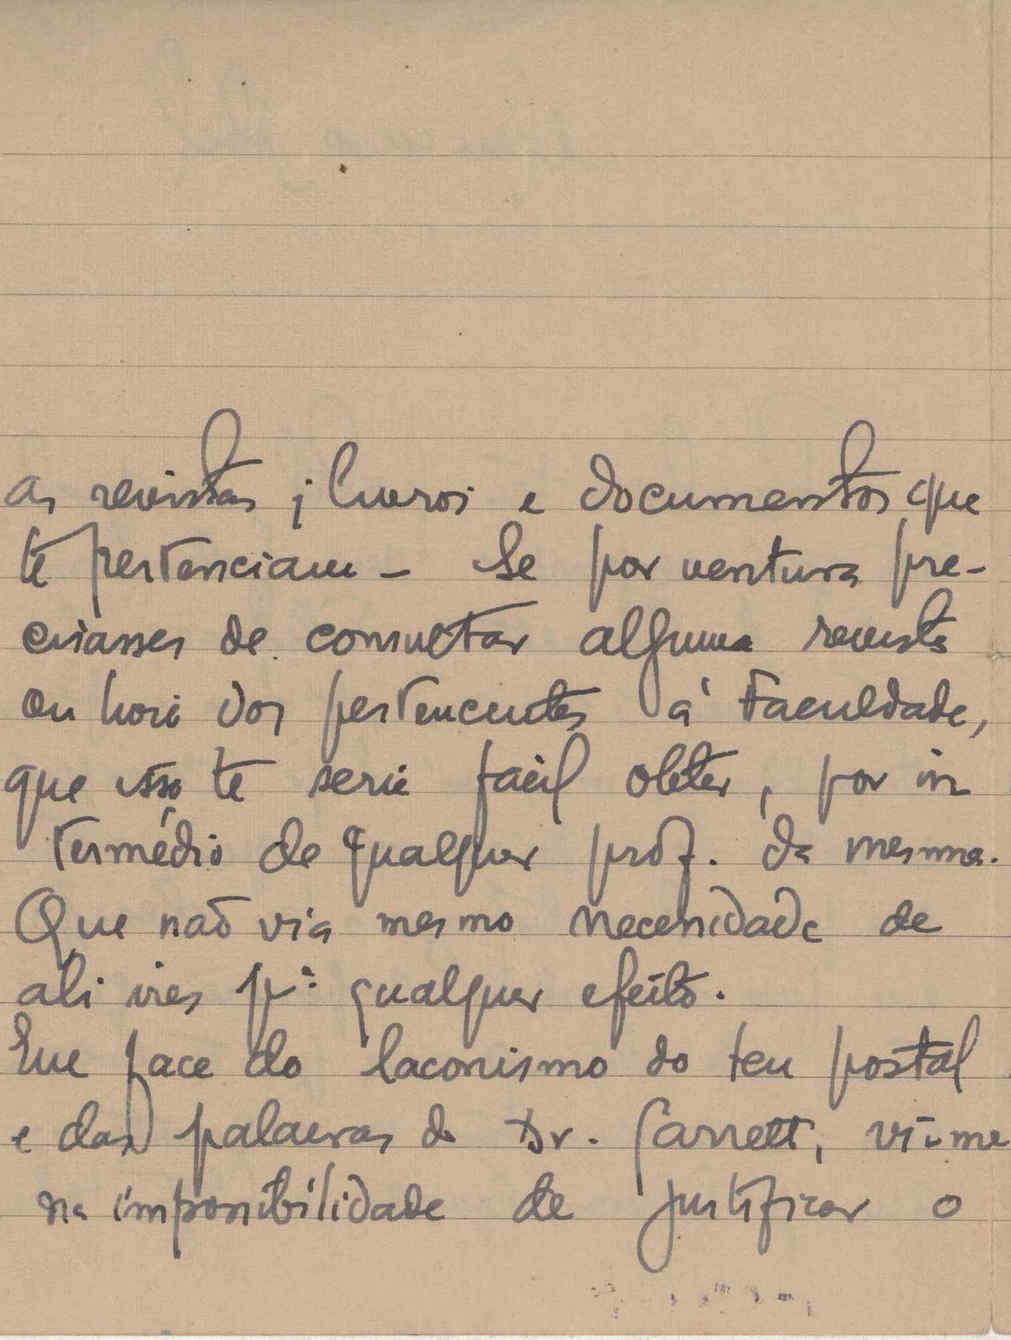 as revistas, livros e documentos que
te pertenciam - Se por ventura pre-
cisasses de consultar alguma revista
ou livro dos pertencentes á Faculdade,
que isso te seria facil obter, por in
termédio de qualquer prof. da mesma.
Que não via mesmo necessidade de
ali ires pª. qualquer efeito.
Em face do laconismo do teu postal
e das palavras do Dr. Garrett, vi-me
na impossibilidade de justificar o